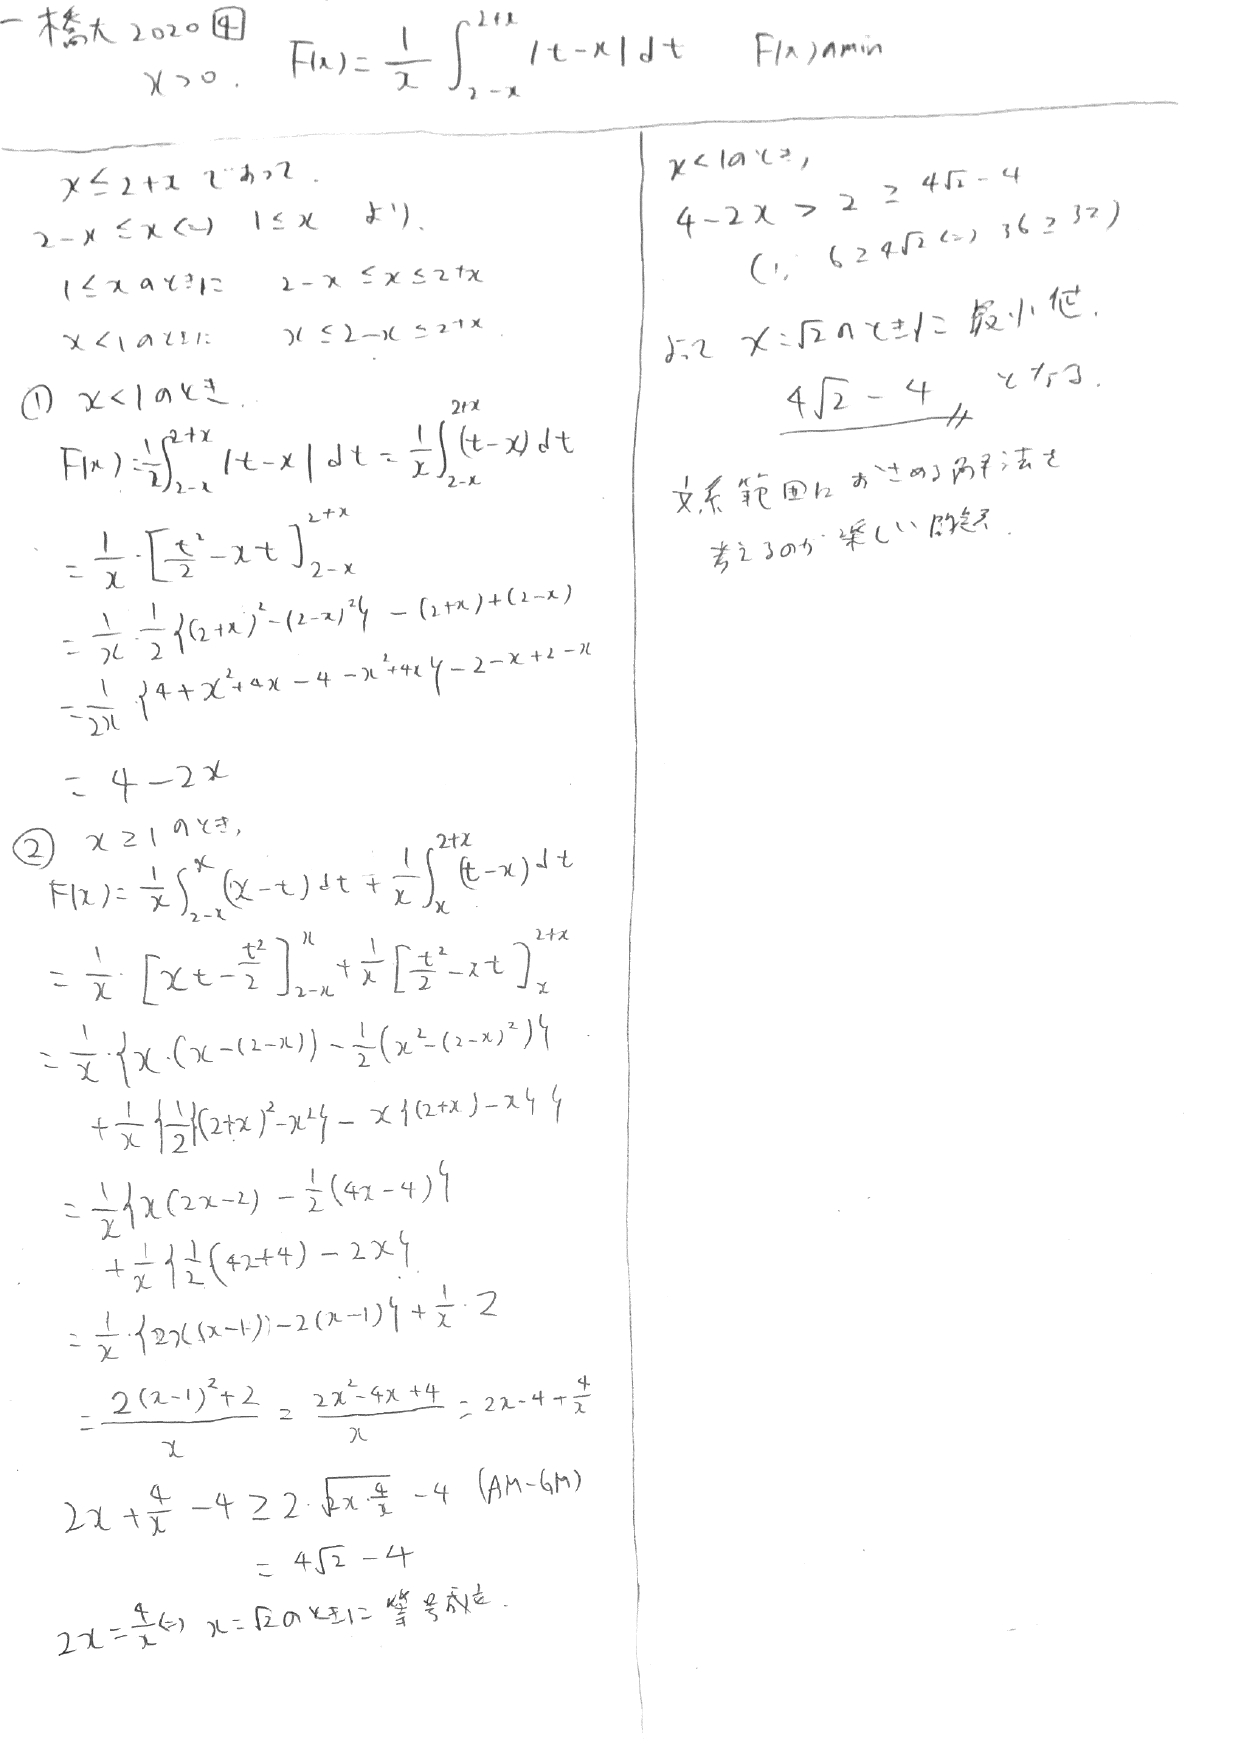 一橋大 2020 4
x>0. F(x)=1/x ∫_{2-x}^{2+x} |t-x|dt F(x)のmin
x≤2+x であって.
2-x≤x⇔1≤x より.
1≤xのときに 2-x≤x≤2+x
x<1のときに x≤2-x≤2+x.
① x<1のとき.
F(x)=1/2 ∫_{2-x}^{2+x} |t-x|dt = 1/x ∫_{2-x}^{2+x} (t-x)dt
= 1/x・[t²/2-xt]_{2-x}^{2+x}
= 1/x・1/2{(2+x)²-(2-x)²}-(2+x)+(2-x)
= 1/2x{4+x²+4x-4-x²+4x}-2-x+2-x
= 4-2x
② x≥1のとき,
F(x)= 1/x ∫_{2-x}^{x} (x-t)dt + 1/x ∫_{x}^{2+x} (t-x)dt
= 1/x・[xt-t²/2]_{2-x}^{x} + 1/x[t²/2-xt]_{x}^{2+x}
= 1/x・{x・(x-(2-x))-1/2(x²-(2-x)²)}
+ 1/x{1/2{(2+x)²-x²}-x{(2+x)-x}}
= 1/x{x(2x-2)-1/2(4x-4)}
+ 1/x{1/2(4x+4)-2x}
= 1/x・{2x(x-1)-2(x-1)}+1/x・2
= (2(x-1)²+2)/x = (2x²-4x+4)/x = 2x-4+4/x
2x+4/x-4≥2・√(2x・4/x)-4 (AM-GM)
= 4√2-4
2x=4/x⇔x=√2のときに等号成立.
x<1のとき,
4-2x>2≥4√2-4
(∵ 6≥4√2⇔36≥32)
よって x=√2のときに最小値.
4√2-4 となる.
文系範囲におさめる解法を
考えるのが楽しい問題.